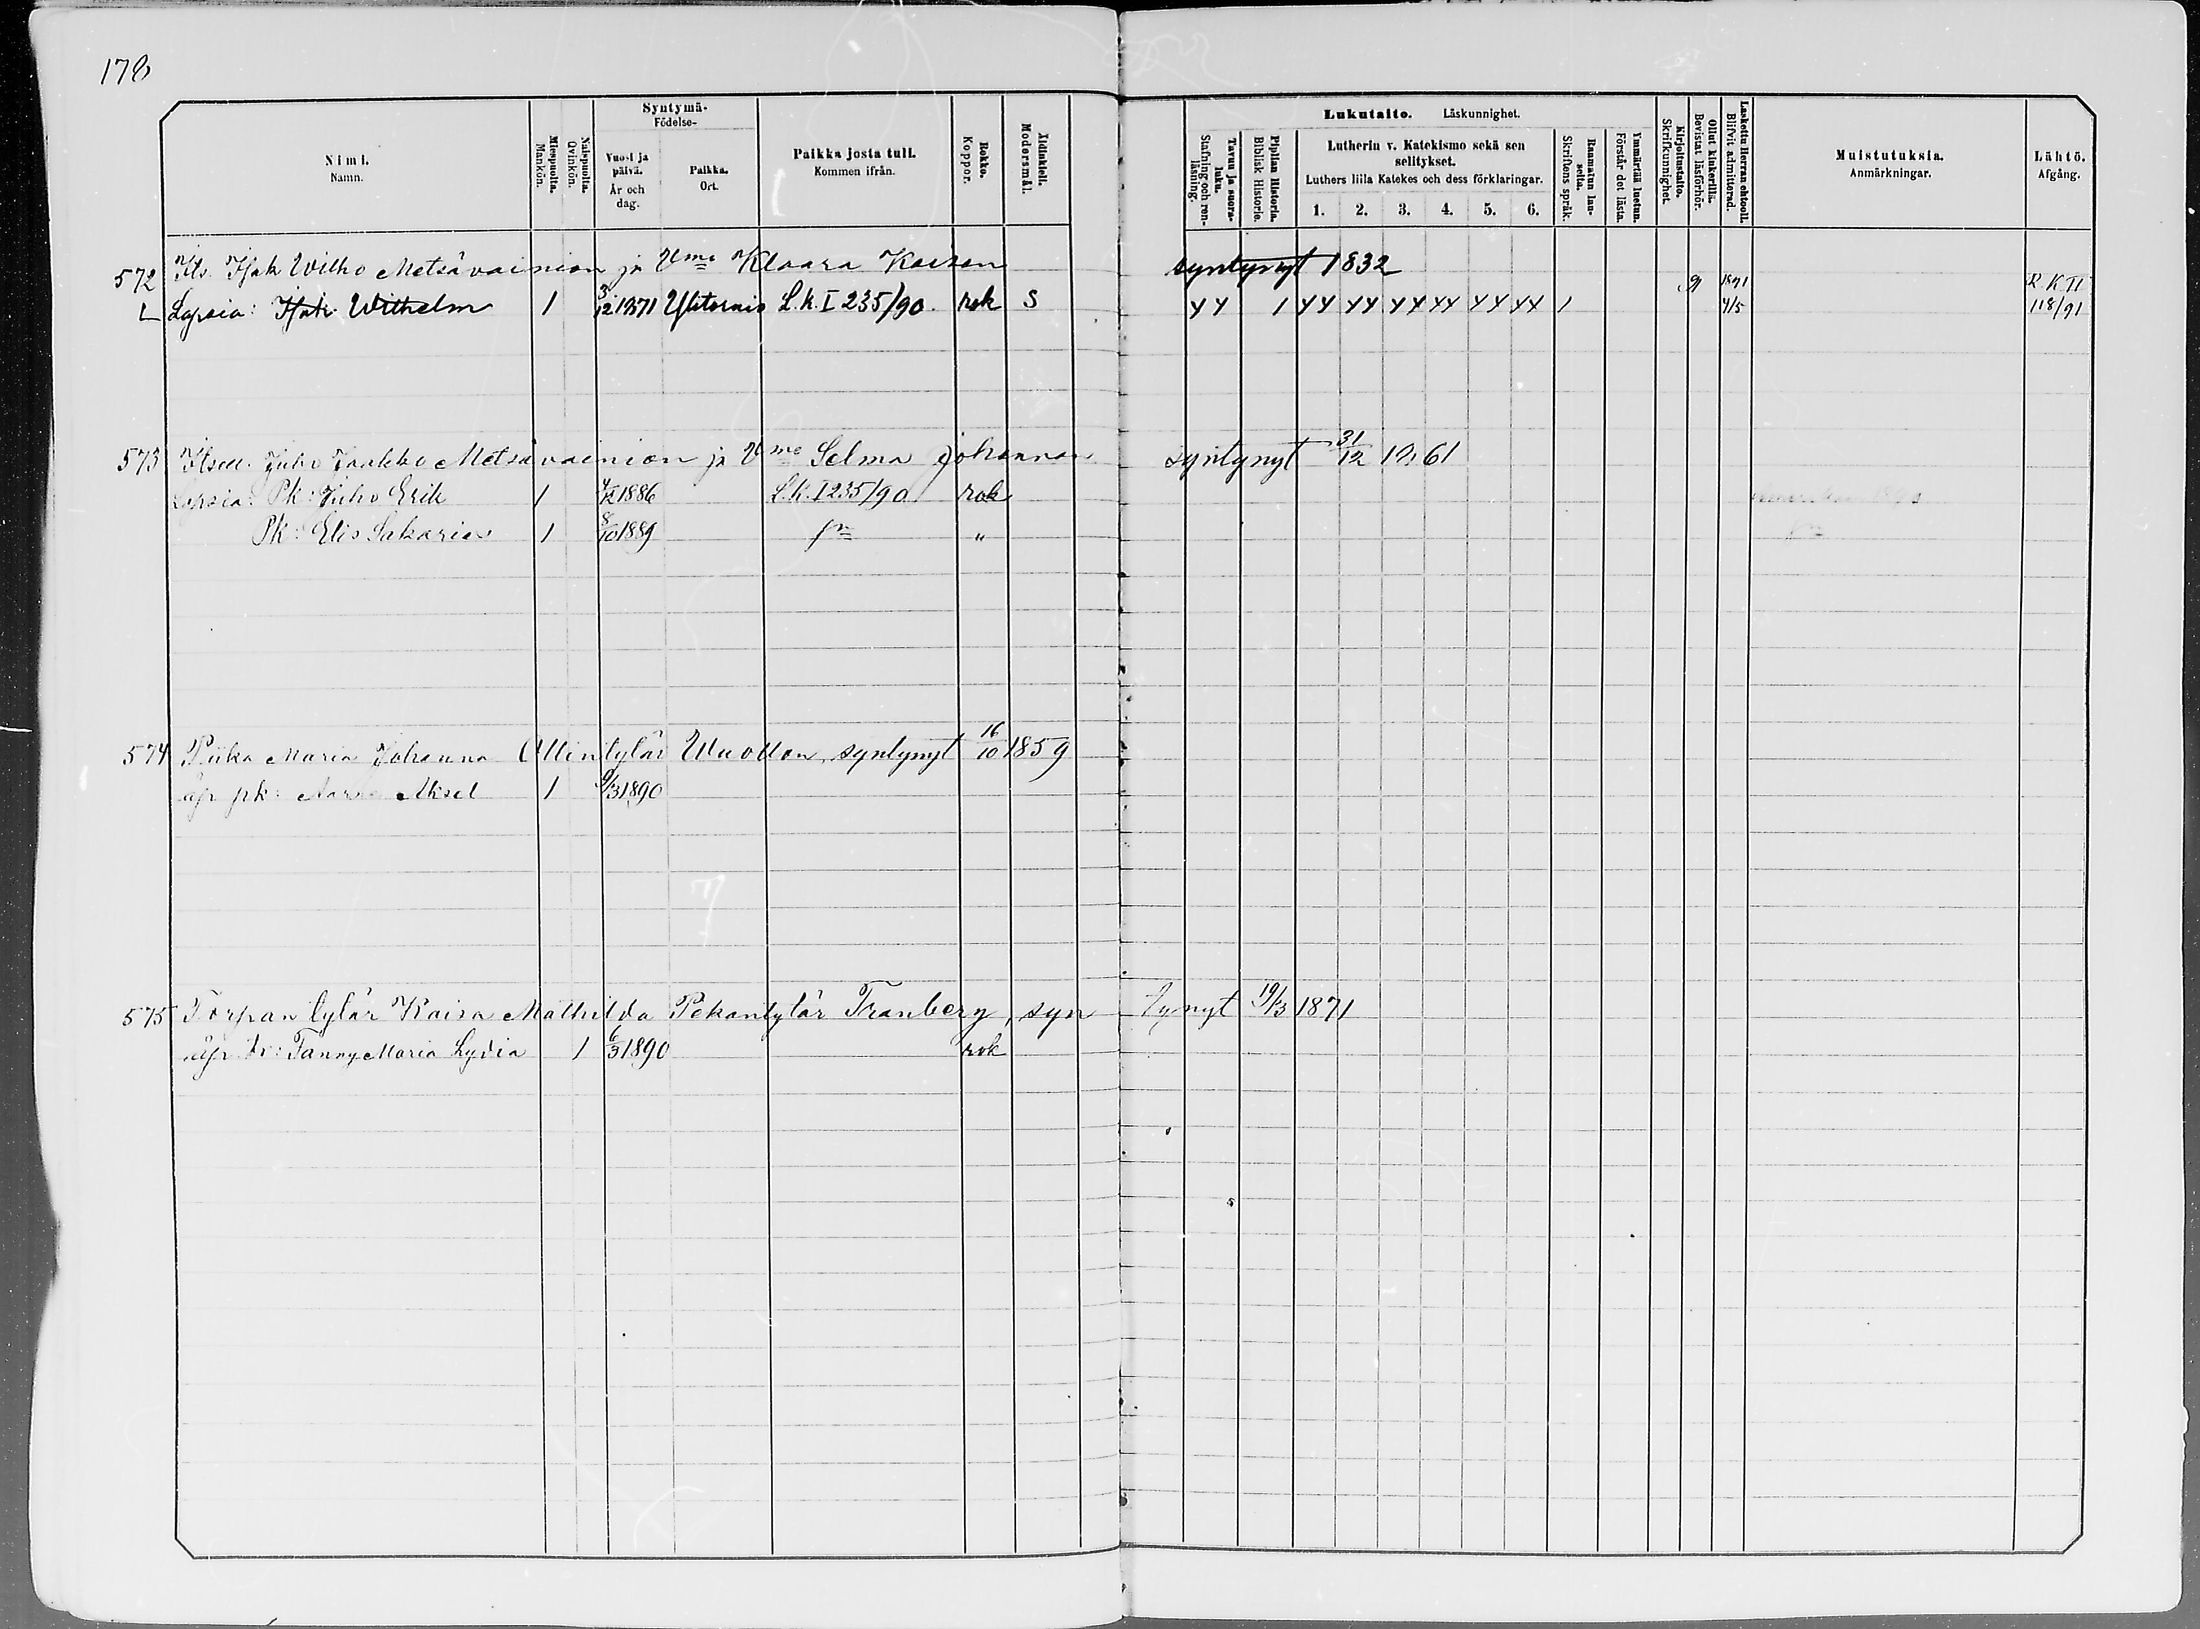 178
Nimi.
Namn.
Miespuolta.
Mankön.
Naispuolta.
Qvinkön.
Syntymä-
Födelse-
Vuosi ja
päivä.
År och
dag.
Paikka.
Ort.
Paikka josta tuli.
Kommen ifrån.
Rokko.
Koppor.
Äidinkieli.
Modersmål.
Lukutaito. Läskunnighet.
Tavuu ja suora-
luku.
Stafning och ren-
läsning.
Piplian Historia.
Biblisk Historie.
Lutherin v. Katekismo sekä sen
selitykset.
Luthers lilla Katekes och dess förklaringar.
1. 2. 3. 4. 5. 6.
Raamatun lau-
seita.
Skriftens språk.
Ymmärtää luetun.
Förstår det lästa.
Kirjoitustaito.
Skrifkunnighet.
Ollut kinkerillä.
Bevistat läsförhör.
Laskettu Herran ehtool.
Blifvit admitterad.
Muistutuksia.
Anmärkningar.
Lähtö.
Afgång.
572 Its. Isak Wilho Metsävainion ja Vmo Klaara Kaisan syntynyt 1832
Lapsia: Isak Wilhelm 1 3/12 1871 Ylitornio L.k. I 235/90. rok S YY 1 YY YY YY YY YY YY 1 91 1891 4/5 R.K II 118/91
573 Itsell. Juho Jaakko Metsävainion ja Vmo Selma Johannan syntynyt 31/12 1861
Lapsia: Pk: Juho Erik 1 1886 L.k. I 235/90 rok
Pk: Elis Sakarias 1 8/10 1889 "
574 Piika Maria Johanna Ollintytär Wuollon, syntynyt 16/10 1859
äpr pk: Aksel 1 9/3 1890
575 Torpan tytär Kaisa Mathilda Pekantytär Tranberg, syntynyt 19/3 1871
äpr tr: Fanny Maria Lydia 1 6/3 1890 rok